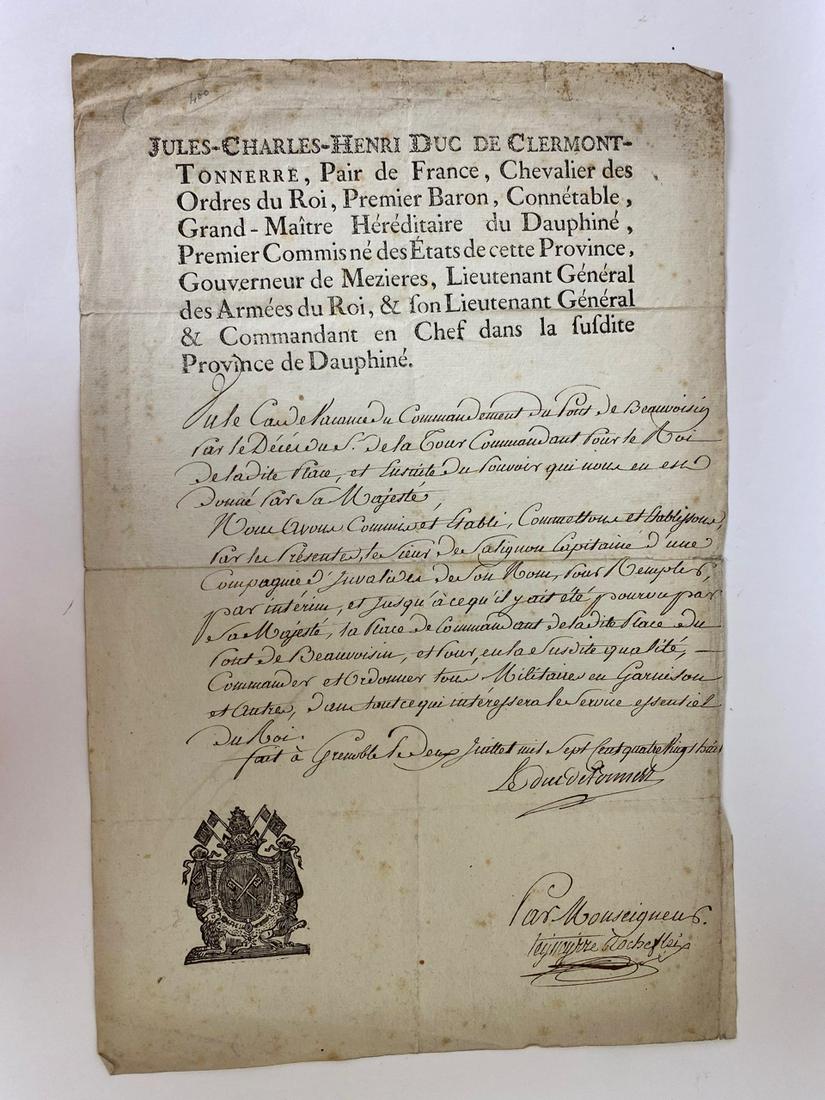 400
JULES-CHARLES-HENRI DUC DE CLERMONT-
TONNERRE, Pair de France, Chevalier des
Ordres du Roi, Premier Baron, Connétable,
Grand-Maître Héréditaire du Dauphiné,
Premier Commis né des États de cette Province,
Gouverneur de Mezieres, Lieutenant Général
des Armées du Roi, & ſon Lieutenant Général
& Commandant en Chef dans la ſuſdite
Province de Dauphiné.
Vu le Cas de Vacance du Commandement du Pont de Beauvoisin
Par le Décès du S.r de la Tour Commandant Pour le Roi
de ladite Place, et Ensuite du Pouvoir qui nous en est
donné Par Sa Majesté,
Nous Avons Commis et Etabli, Commettons et Etablissons,
Par les Présentes, le Sieur de Salignon Capitaine d'une
Compagnie d'Invalides de Son Nom, Pour Remplir,
par interim, et Jusqu'à ce qu'il y ait été pourvu par
Sa Majesté, la Place de Commandant de ladite Place du
Pont de Beauvoisin, et Pour, en la Susdite qualité,
Commander et Ordonner tous Militaires en Garnison
et Autres, dans tout ce qui intéressera le Service essentiel
du Roi.
fait à Grenoble le deux Juillet mil Sept Cent quatre Vingt huit
Le duc de Tonnerre
Par Monseigneur.